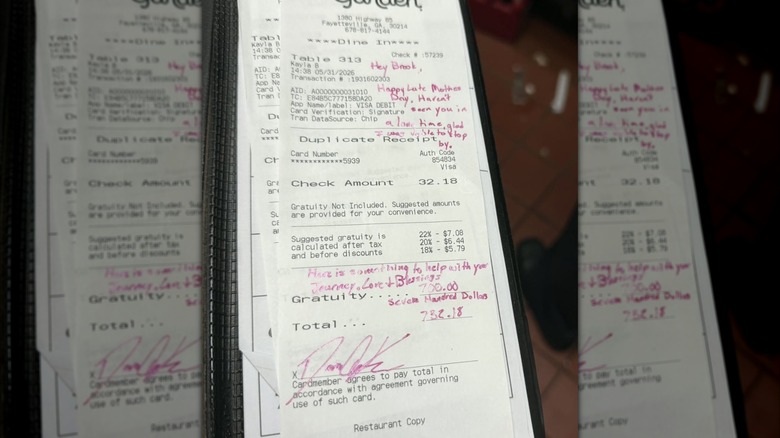 Garden
1380 Highway 85
Fayetteville, GA, 30214
678-817-4144
****Dine In****
Check #: 57239
Table 313
Kayla B
14:38 05/31/2026
Transaction #: 1931602303
Hey Brook,
AID: A0000000031010
TC: E8465C7771580A20
App Name/label: VISA DEBIT
Card Verification: Signature
Tran DataSource: Chip
Happy Late Mother
Day, Haven't
seen you in
a long time, glad
I was able to stop
by.
Duplicate Receipt
Card Number
Auth Code
************5939
854834
Visa
Check Amount 32.18
Gratuity Not Included. Suggested amounts
are provided for your convenience.
Suggested gratuity is
calculated after tax
and before discounts
22% - $7.08
20% - $6.44
18% - $5.79
Here is something to help with your
Journey. Love & Blessings
Gratuity.... 700.00
Seven Hundred Dollars
Total... 732.18
X
Cardmember agrees to pay total in
accordance with agreement governing
use of such card.
Restaurant Copy